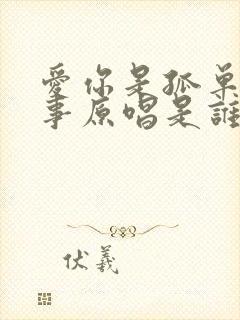 愛你是孤單
事原唱是誰
伏羲